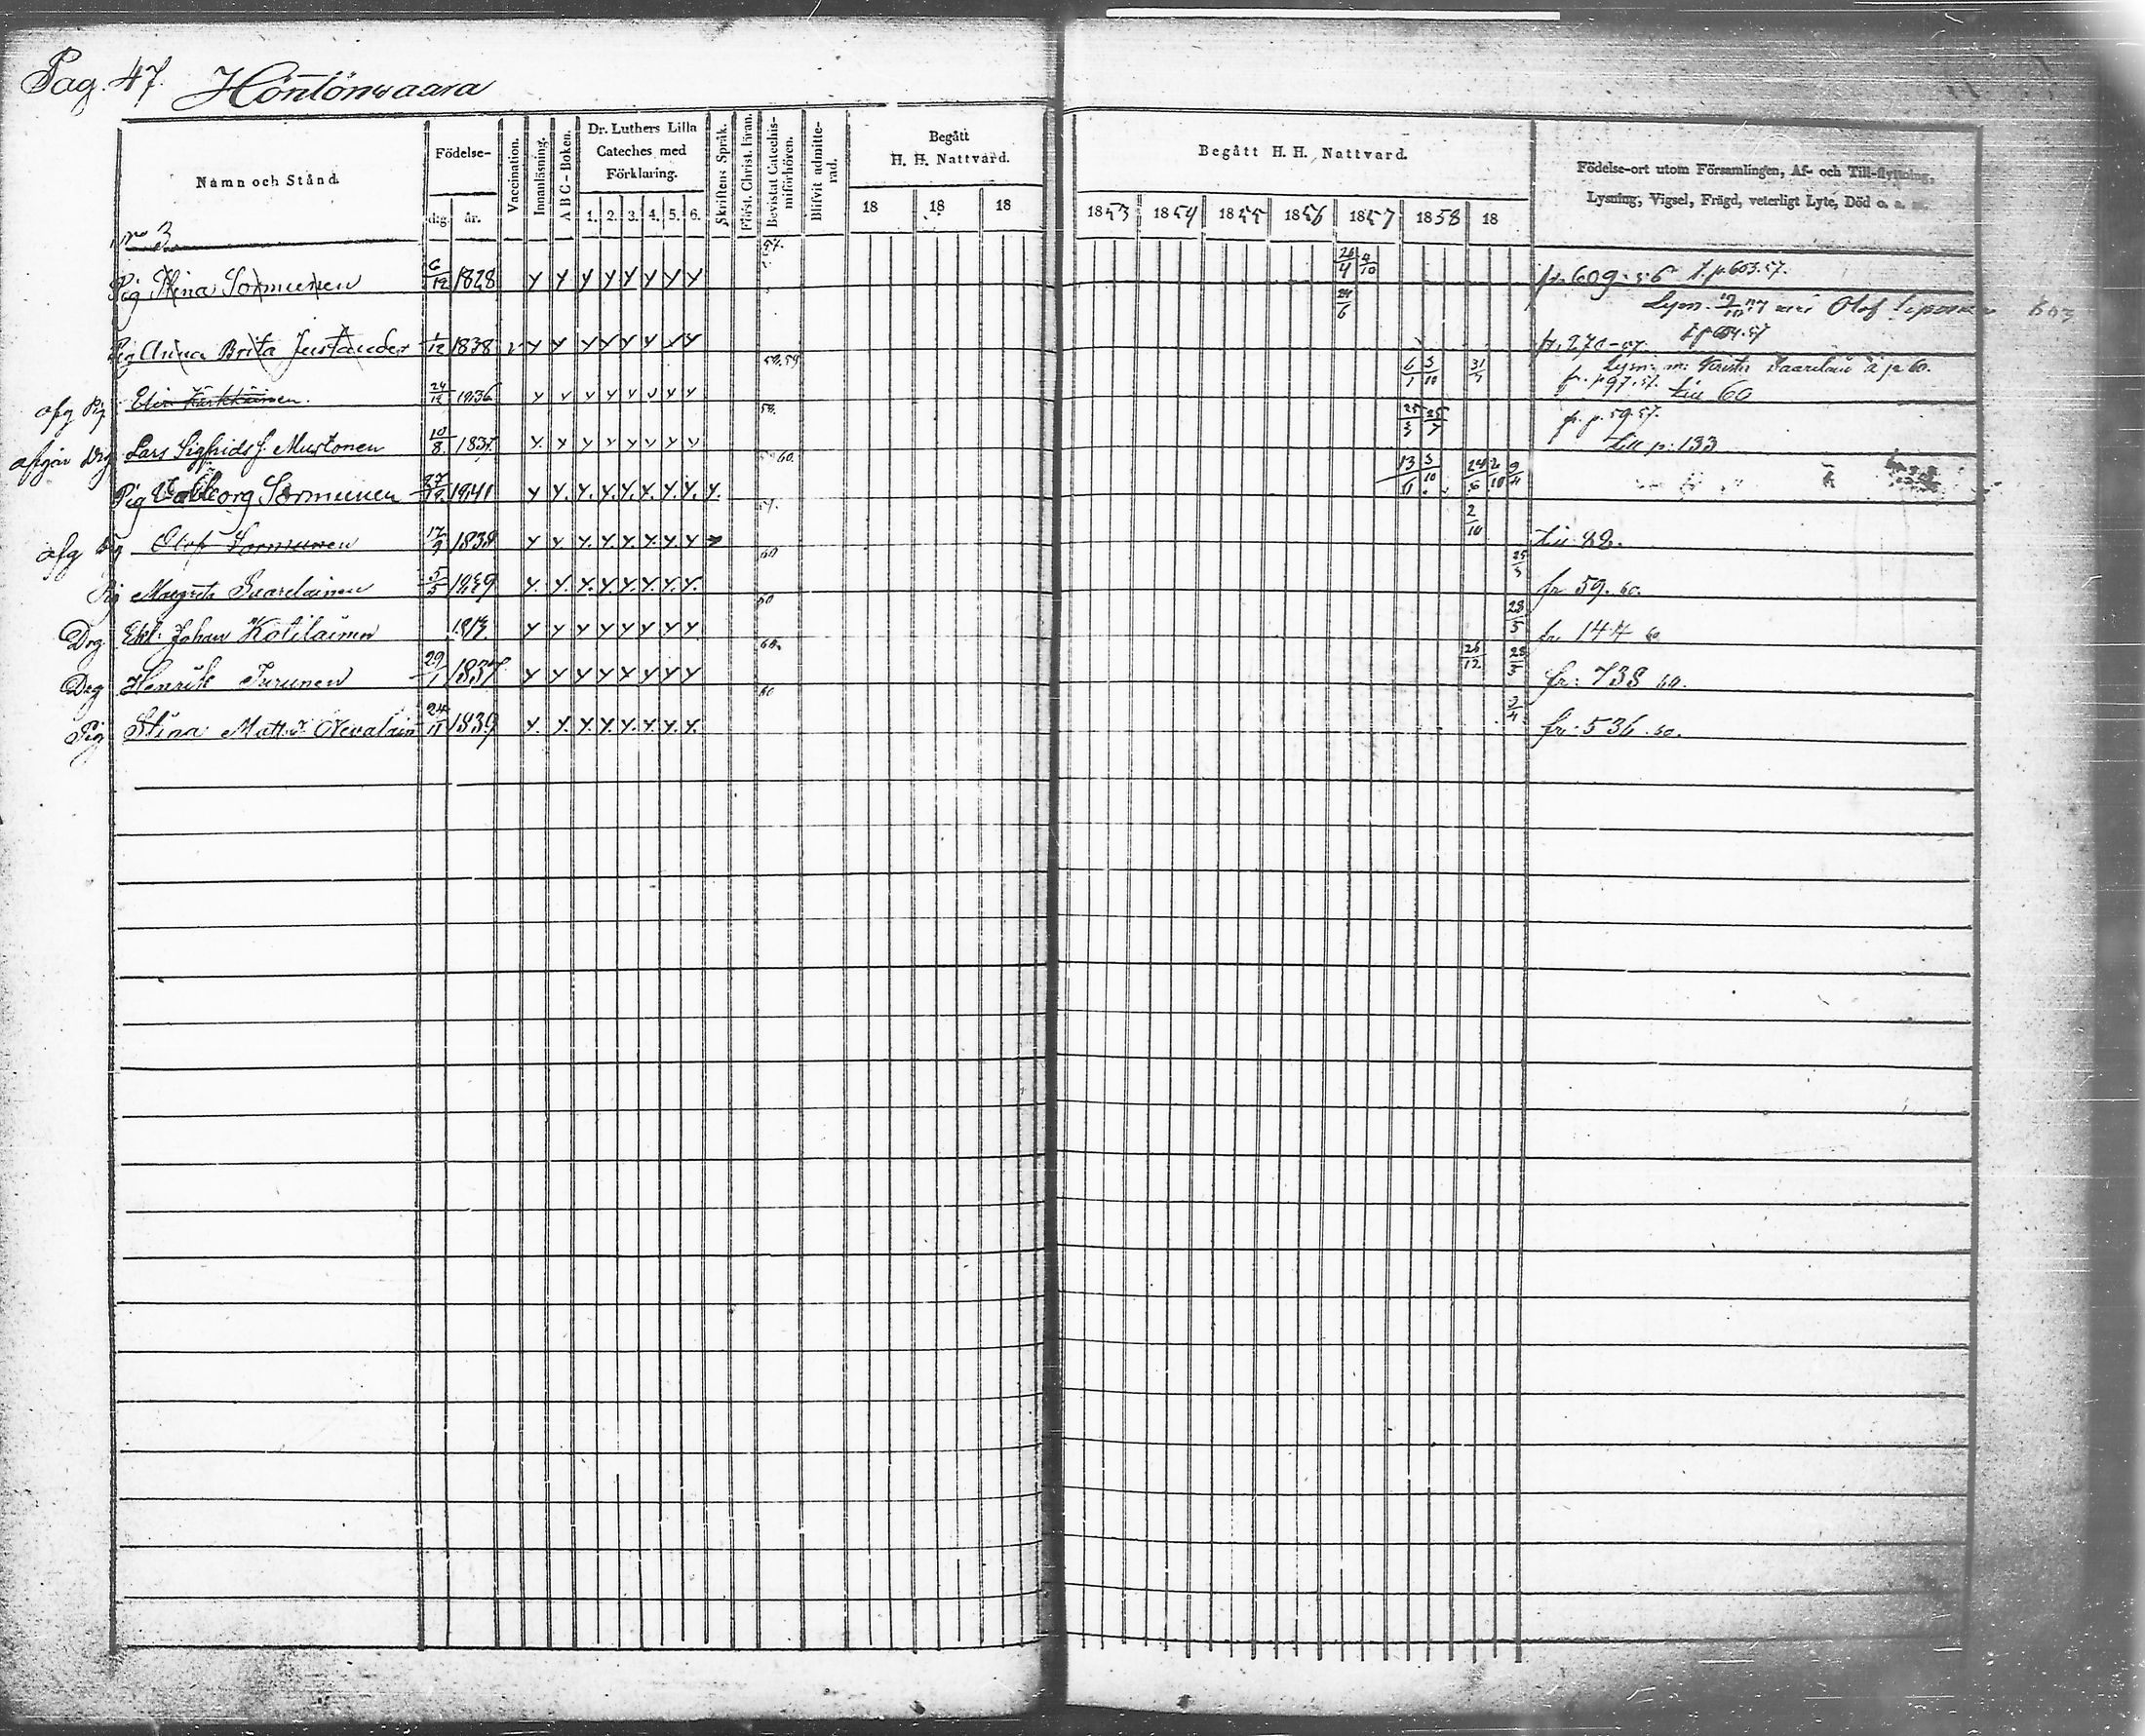 Pag. 47. Höntönwaara
Namn och Stånd.
Födelse-
dag. år.
Vaccination.
Innanläsning.
A B C - Boken.
Dr. Luthers Lilla
Cateches med
Förklaring.
1. 2. 3. 4. 5. 6.
Skriftens Språk.
Först. Christ. läran.
Bevistat Catechis-
miförhören.
Blifvit admitte-
rad.
Begått
H. H. Nattvard.
18 18 18
Begått H. H. Nattvard.
1853 1854 1855 1856 1857 1858 18
Födelse-ort utom Församlingen, Af- och Till-flyttning,
Lysning, Vigsel, Frägd, veterligt Lyte, Död o. s. m.
n:o 3
57.
Pig Stina Sormunen 6/12 1828 y y y y y y y y 26/4 4/10 fr. 609. 56 t. p 603. 57.
24/6 Lysn. med Olof 603
Pig Anna Brita 1/12 1838 v y y y y y y y y fr. 270-57. t p 57
58.59 6/1 3/10 31/7 Lysn: m: Saarelain å p 60.
afg Pig Elin Kärkkäinen. 24/12 1836 y v v y y v y y fr. p 97. 57. till 60
58. 25/3 25/7 fr. p. 59. 57.
afgår Drg Lars Sigfrids s. Mustonen 10/8 1837. y. y y y y y y y till p. 133
60. 13/11 3/10 24/6 2/10 9/4
Pig Valborg Sormunen 27/12 1841 y y. y. y. y. y. y. y. y.
2/10
afg Drg Olof Sormunen 17/9 1838 y y. y. y. y. y. y. y till 22.
60 25/3
Pig Margreta Saarelainen 5/5 y. y. y. y. y. y. y. y. fr 59. 60.
60 28/5
Drg Enk: Johan Kotilainen 1813 y y y y y y y y. fr 144 60
60. 26/12 28/5
Drg Henrik Turunen 29/1 1837 y y y y y y y y fr: 738 60.
60 2/4
Pig Stina Matts d. Nevalain 24/11 1839 y. y. y. y. y. y. y. y. fr: 536. 60.